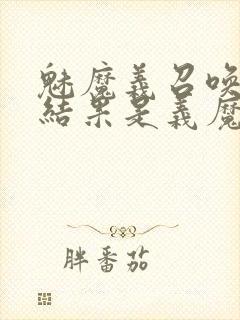 魅魔義召唤
結果是義魔
胖番茄